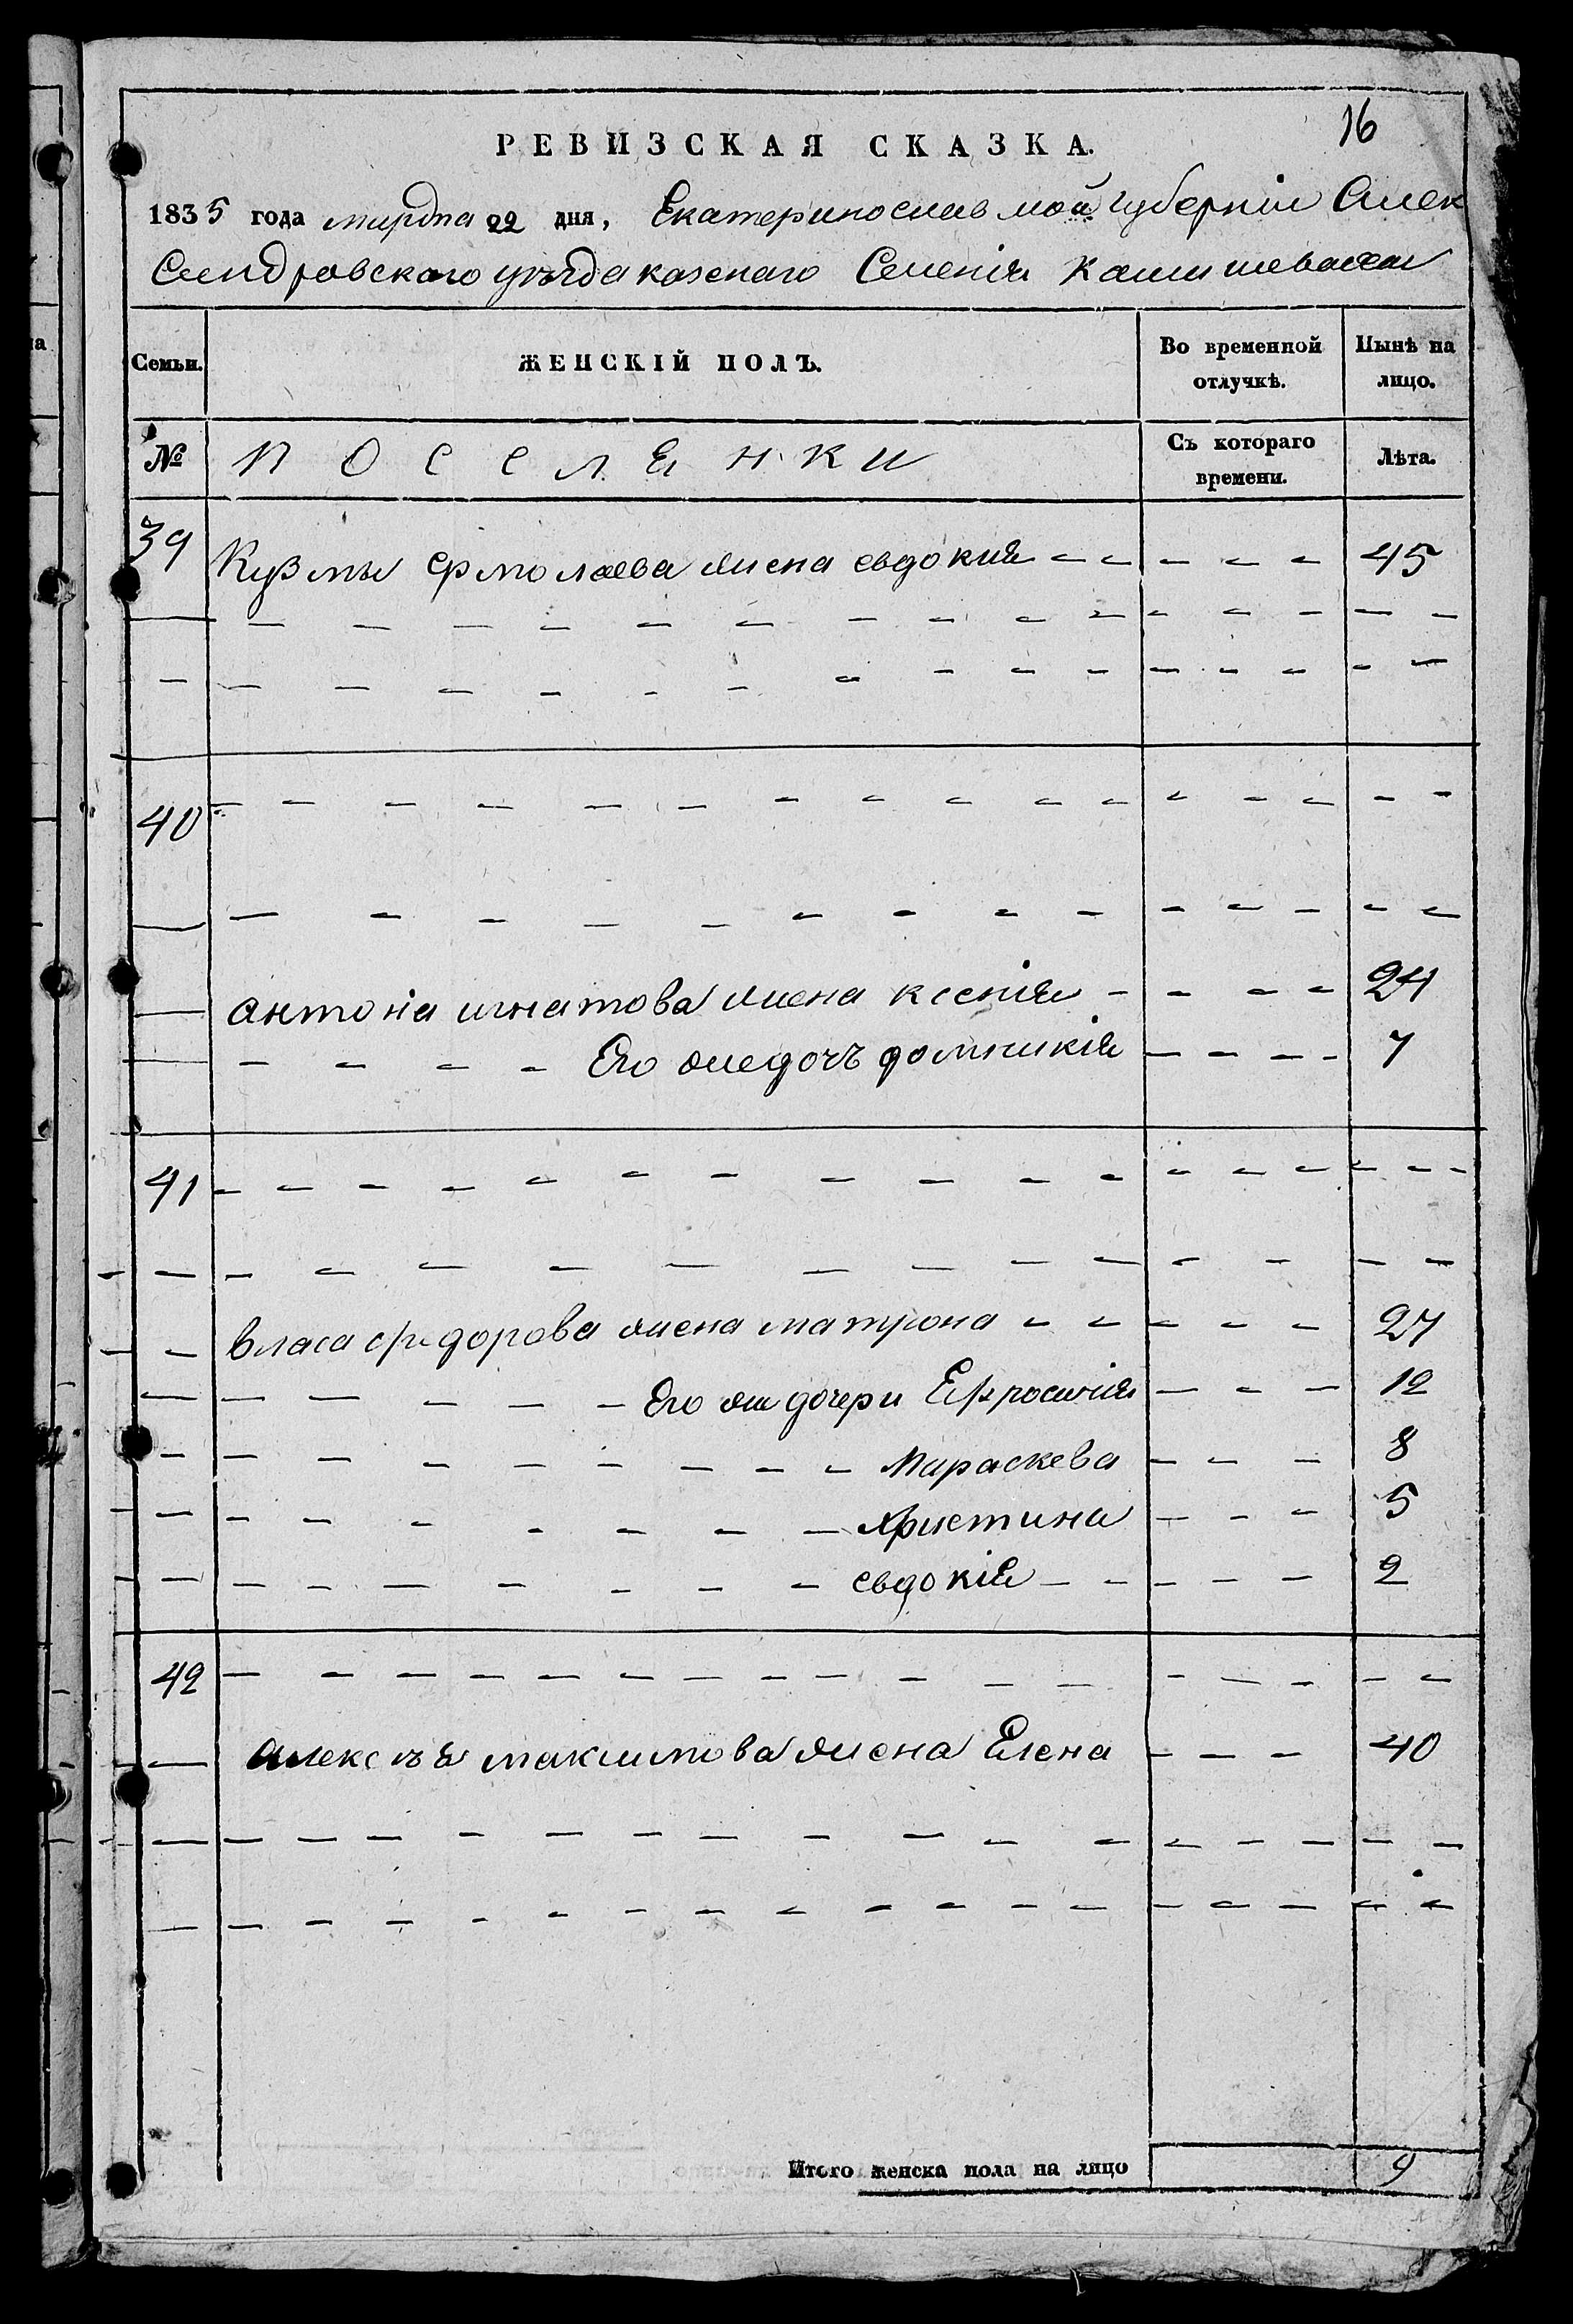 16
РЕВИЗСКАЯ СКАЗКА.
1835 года марта 22 дня, Екатеринославмой губерніи Алек
Сандровского уѣзда казенаго Селенія Камишевахи
Семьи. ЖЕНСКІЙ ПОЛЪ. Во временной отлучкѣ. Нынѣ на лицо.
№ ПОССЕЛЕНКИ Съ котораго времени. Лѣта.
39 Кузмы ермолаева жена евдокия 45
40
антона игнатова жена ксения 24
Его жедочъ домникія 7
41
власа федорова жена матрона 27
Его же дочери Ефросинія 12
Параскева 8
Христина 5
евдокія 2
42
алексѣя максимова жена Елена 40
Итого женска пола на лицо 9